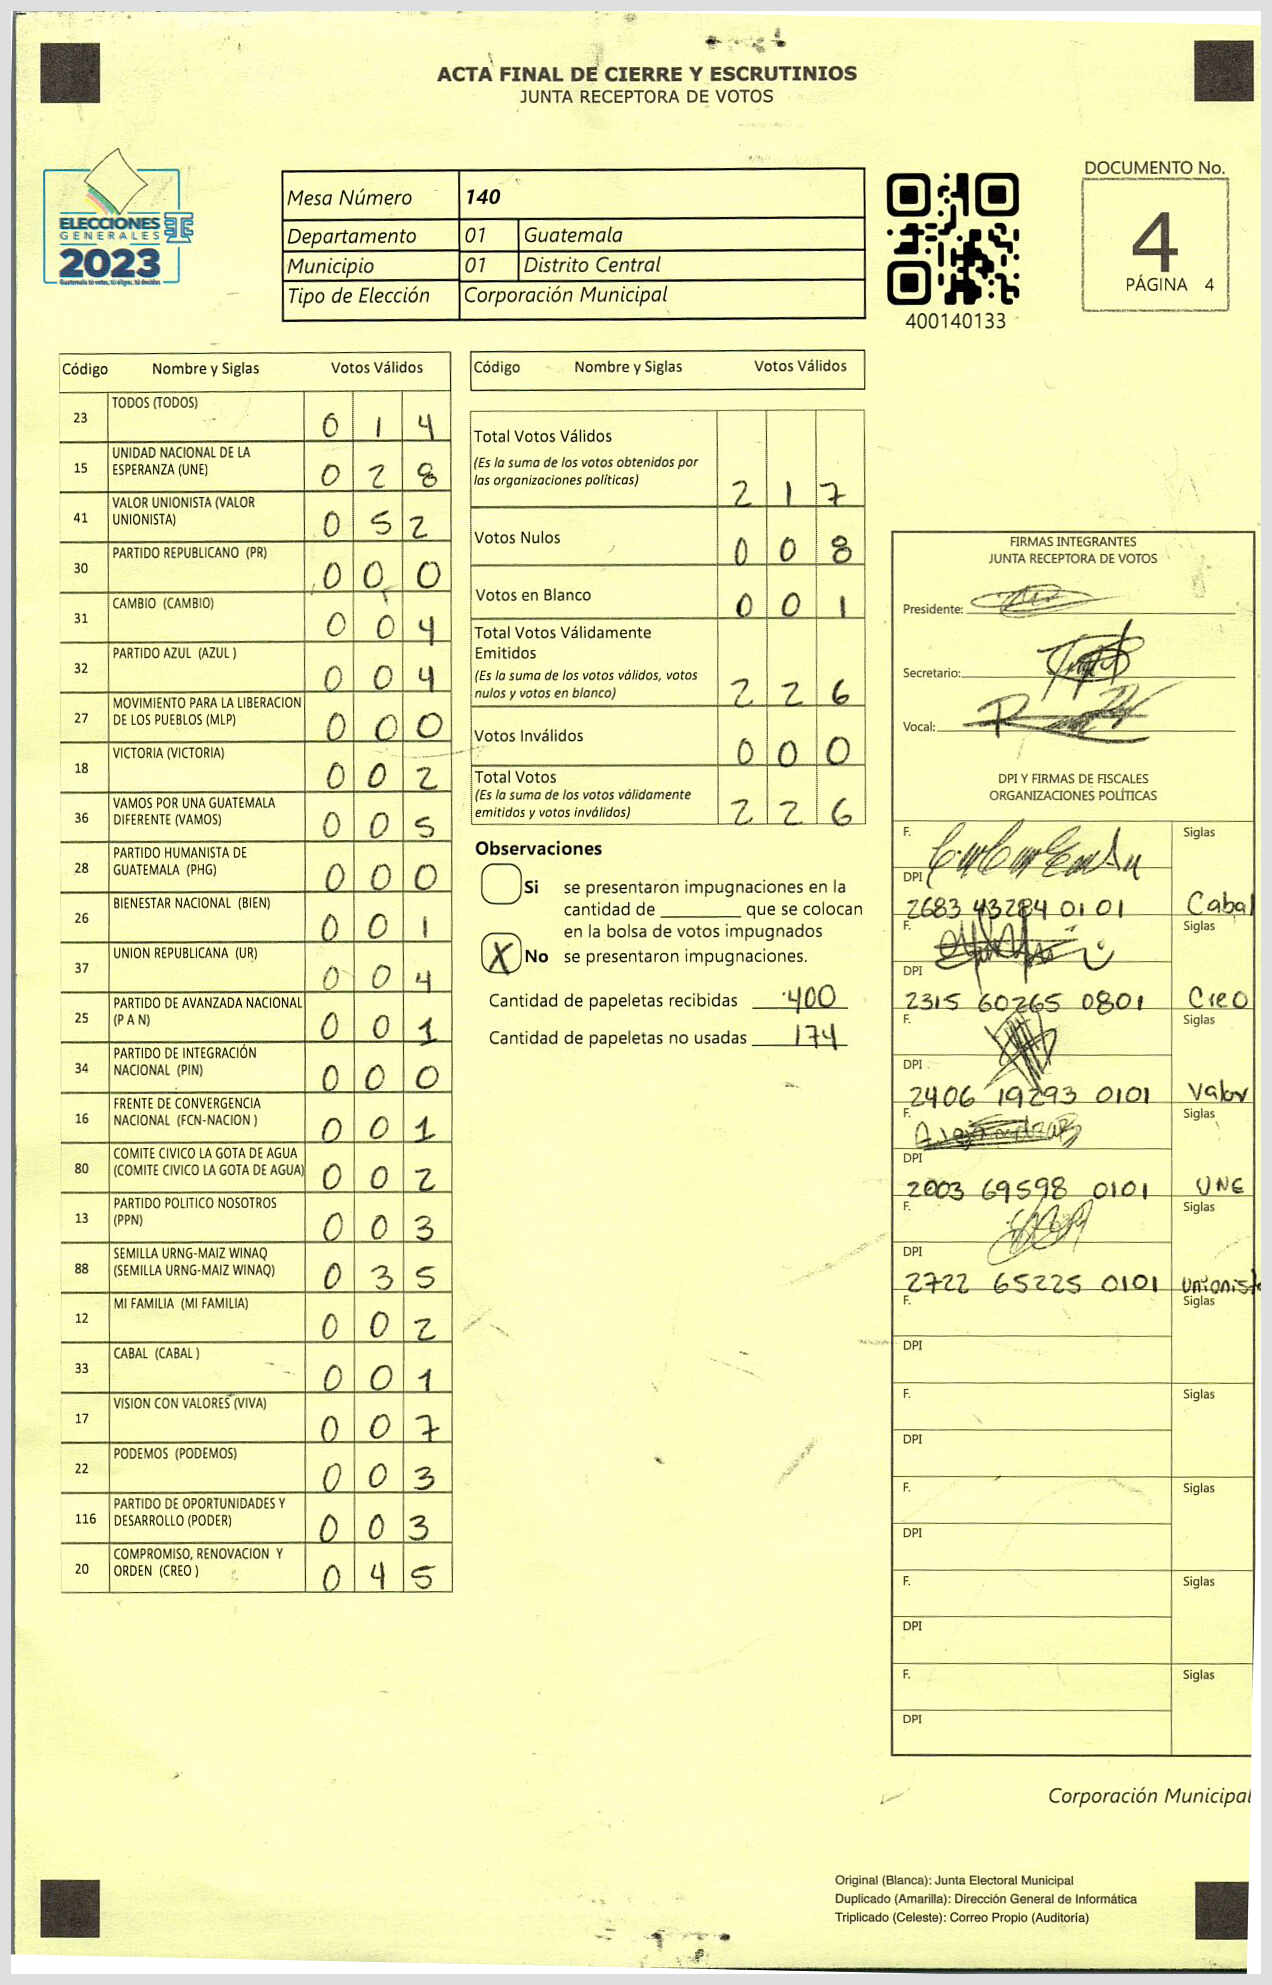 ACTA FINAL DE CIERRE Y ESCRUTINIOS
JUNTA RECEPTORA DE VOTOS
ELECCIONES
GENERALES
2023
Mesa Número 140
Departamento 01 Guatemala
Municipio 01 Distrito Central
Tipo de Elección Corporación Municipal
400140133
DOCUMENTO No.
4
PÁGINA 4
Código Nombre y Siglas Votos Válidos
23 TODOS (TODOS) 0 1 4
15 UNIDAD NACIONAL DE LA
ESPERANZA (UNE) 0 2 8
41 VALOR UNIONISTA (VALOR
UNIONISTA) 0 5 2
30 PARTIDO REPUBLICANO (PR) 0 0 0
31 CAMBIO (CAMBIO) 0 0 4
32 PARTIDO AZUL (AZUL ) 0 0 4
27 MOVIMIENTO PARA LA LIBERACION
DE LOS PUEBLOS (MLP) 0 0 0
18 VICTORIA (VICTORIA) 0 0 2
36 VAMOS POR UNA GUATEMALA
DIFERENTE (VAMOS) 0 0 5
28 PARTIDO HUMANISTA DE
GUATEMALA (PHG) 0 0 0
26 BIENESTAR NACIONAL (BIEN) 0 0 1
37 UNION REPUBLICANA (UR) 0 0 4
25 PARTIDO DE AVANZADA NACIONAL
(P A N) 0 0 1
34 PARTIDO DE INTEGRACIÓN
NACIONAL (PIN) 0 0 0
16 FRENTE DE CONVERGENCIA
NACIONAL (FCN-NACION ) 0 0 1
80 COMITE CIVICO LA GOTA DE AGUA
(COMITE CIVICO LA GOTA DE AGUA) 0 0 2
13 PARTIDO POLITICO NOSOTROS
(PPN) 0 0 3
88 SEMILLA URNG-MAIZ WINAQ
(SEMILLA URNG-MAIZ WINAQ) 0 3 5
12 MI FAMILIA (MI FAMILIA) 0 0 2
33 CABAL (CABAL ) 0 0 1
17 VISION CON VALORES (VIVA) 0 0 7
22 PODEMOS (PODEMOS) 0 0 3
116 PARTIDO DE OPORTUNIDADES Y
DESARROLLO (PODER) 0 0 3
20 COMPROMISO, RENOVACION Y
ORDEN (CREO ) 0 4 5
Código Nombre y Siglas Votos Válidos
Total Votos Válidos
(Es la suma de los votos obtenidos por
las organizaciones políticas) 2 1 7
Votos Nulos 0 0 8
Votos en Blanco 0 0 1
Total Votos Válidamente
Emitidos
(Es la suma de los votos válidos, votos
nulos y votos en blanco) 2 2 6
Votos Inválidos 0 0 0
Total Votos
(Es la suma de los votos válidamente
emitidos y votos inválidos) 2 2 6
Observaciones
Si se presentaron impugnaciones en la
cantidad de ________ que se colocan
en la bolsa de votos impugnados
X No se presentaron impugnaciones.
Cantidad de papeletas recibidas 400
Cantidad de papeletas no usadas 174
FIRMAS INTEGRANTES
JUNTA RECEPTORA DE VOTOS
Presidente:
Secretario:
Vocal:
DPI Y FIRMAS DE FISCALES
ORGANIZACIONES POLÍTICAS
F. Siglas
DPI
2683 43284 0101 Cabal
F. Siglas
DPI
2315 60265 0801 Creo
F. Siglas
DPI
2406 19293 0101 Valor
F. Siglas
DPI
2003 69598 0101 UNE
F. Siglas
DPI
2722 65225 0101 Unionista
F. Siglas
DPI
F. Siglas
DPI
F. Siglas
DPI
F. Siglas
DPI
F. Siglas
DPI
Corporación Municipal
Original (Blanca): Junta Electoral Municipal
Duplicado (Amarilla): Dirección General de Informática
Triplicado (Celeste): Correo Propio (Auditoría)